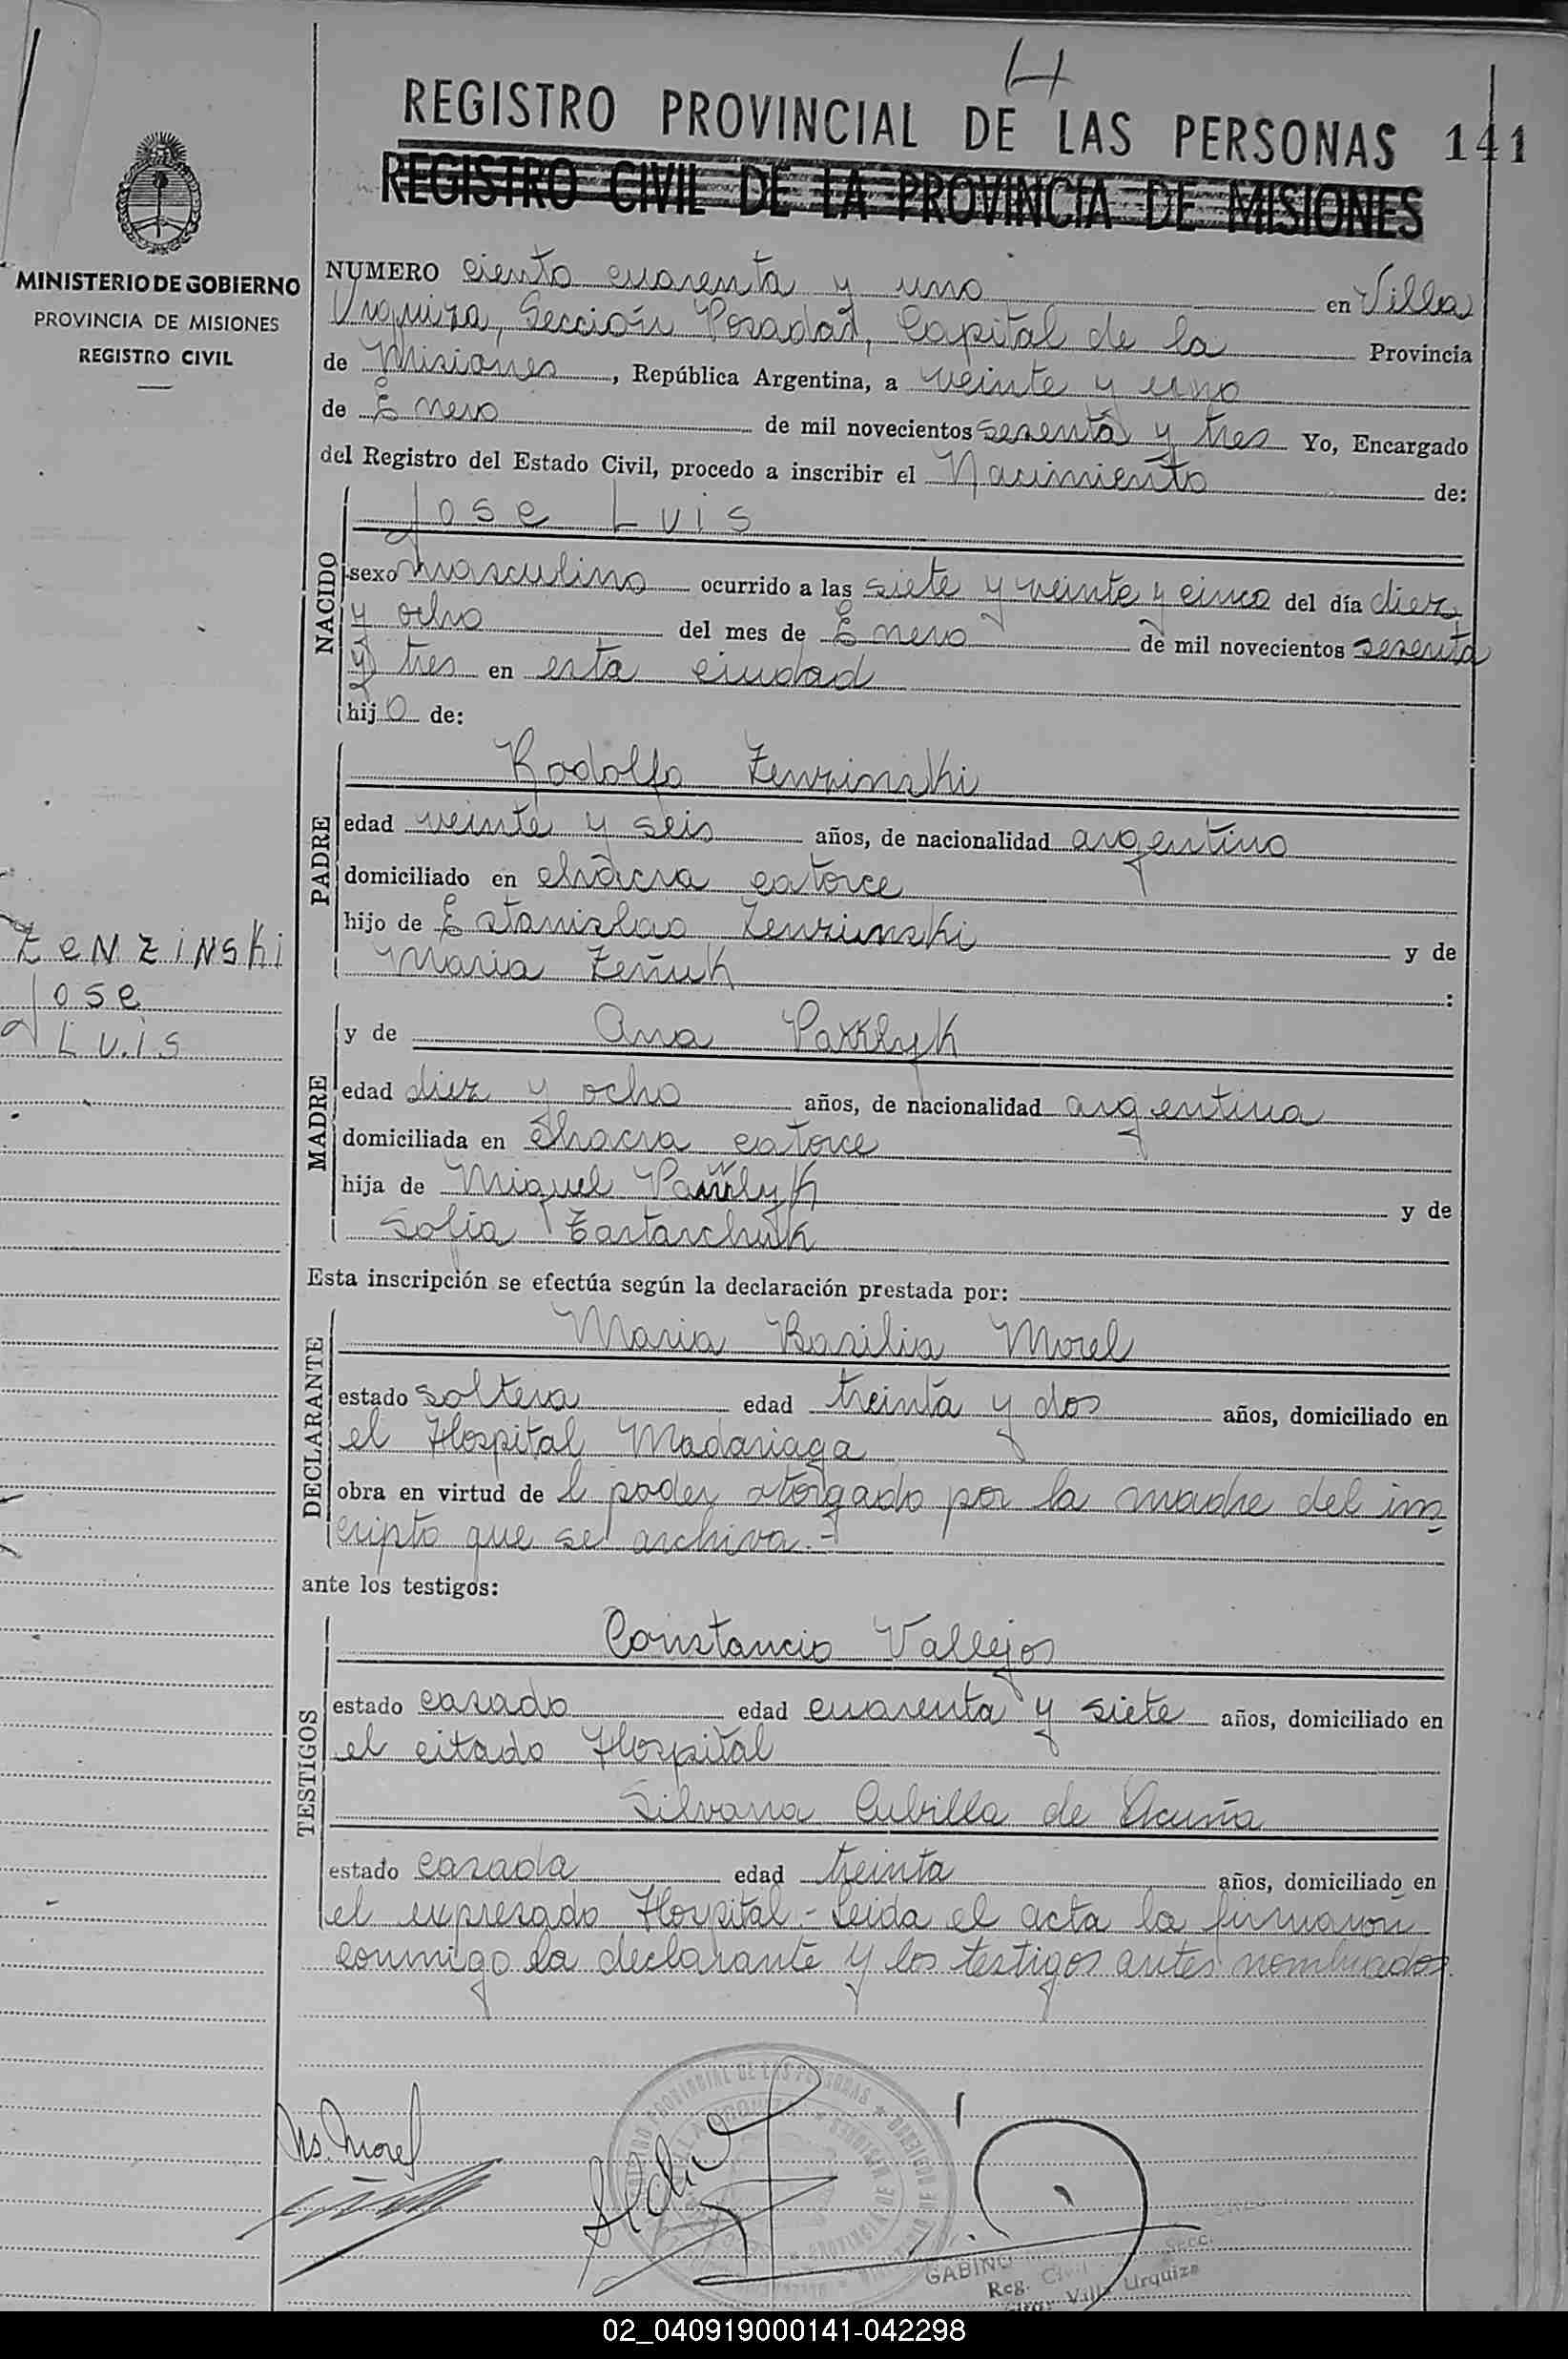 14
REGISTRO PROVINCIAL DE LAS PERSONAS 141
REGISTRO CIVIL DE LA PROVINCIA DE MISIONES
MINISTERIO DE GOBIERNO
PROVINCIA DE MISIONES
REGISTRO CIVIL
NUMERO ciento cuarenta y uno en Villa
Urquiza, Sección Posadas, Capital de la Provincia
de Misiones, República Argentina, a veinte y uno
de Enero de mil novecientos sesenta y tres Yo, Encargado
del Registro del Estado Civil, procedo a inscribir el Nacimiento de:
NACIDO
Jose Luis
sexo masculino ocurrido a las siete y veinte y cinco del día diez
y ocho del mes de Enero de mil novecientos sesenta
y tres en esta ciudad
hijo de:
PADRE
Rodolfo Zenzinski
edad veinte y seis años, de nacionalidad argentino
domiciliado en chacra catorce
hijo de Estanislao Zenzinski y de
Maria
ZENZINSKI
Jose
Luis
MADRE
y de Ana
edad diez y ocho años, de nacionalidad argentina
domiciliada en chacra catorce
hija de Miguel y de
Sofia
Esta inscripción se efectúa según la declaración prestada por:
DECLARANTE
Maria Basilia Morel
estado soltera edad treinta y dos años, domiciliado en
el Hospital Madariaga
obra en virtud de l poder otorgado por la madre del ins
cripto que se archiva.-
ante los testigos:
TESTIGOS
Constancio Vallejos
estado casado edad cuarenta y siete años, domiciliado en
el citado Hospital
Silvana Cubilla de Acuña
estado casada edad treinta años, domiciliado en
el expresado Hospital.- Leida el acta la firmaron
conmigo la declarante y los testigos antes nombrados
Morel
GABINO
Reg. Civil
Villa Urquiza
02_040919000141-042298